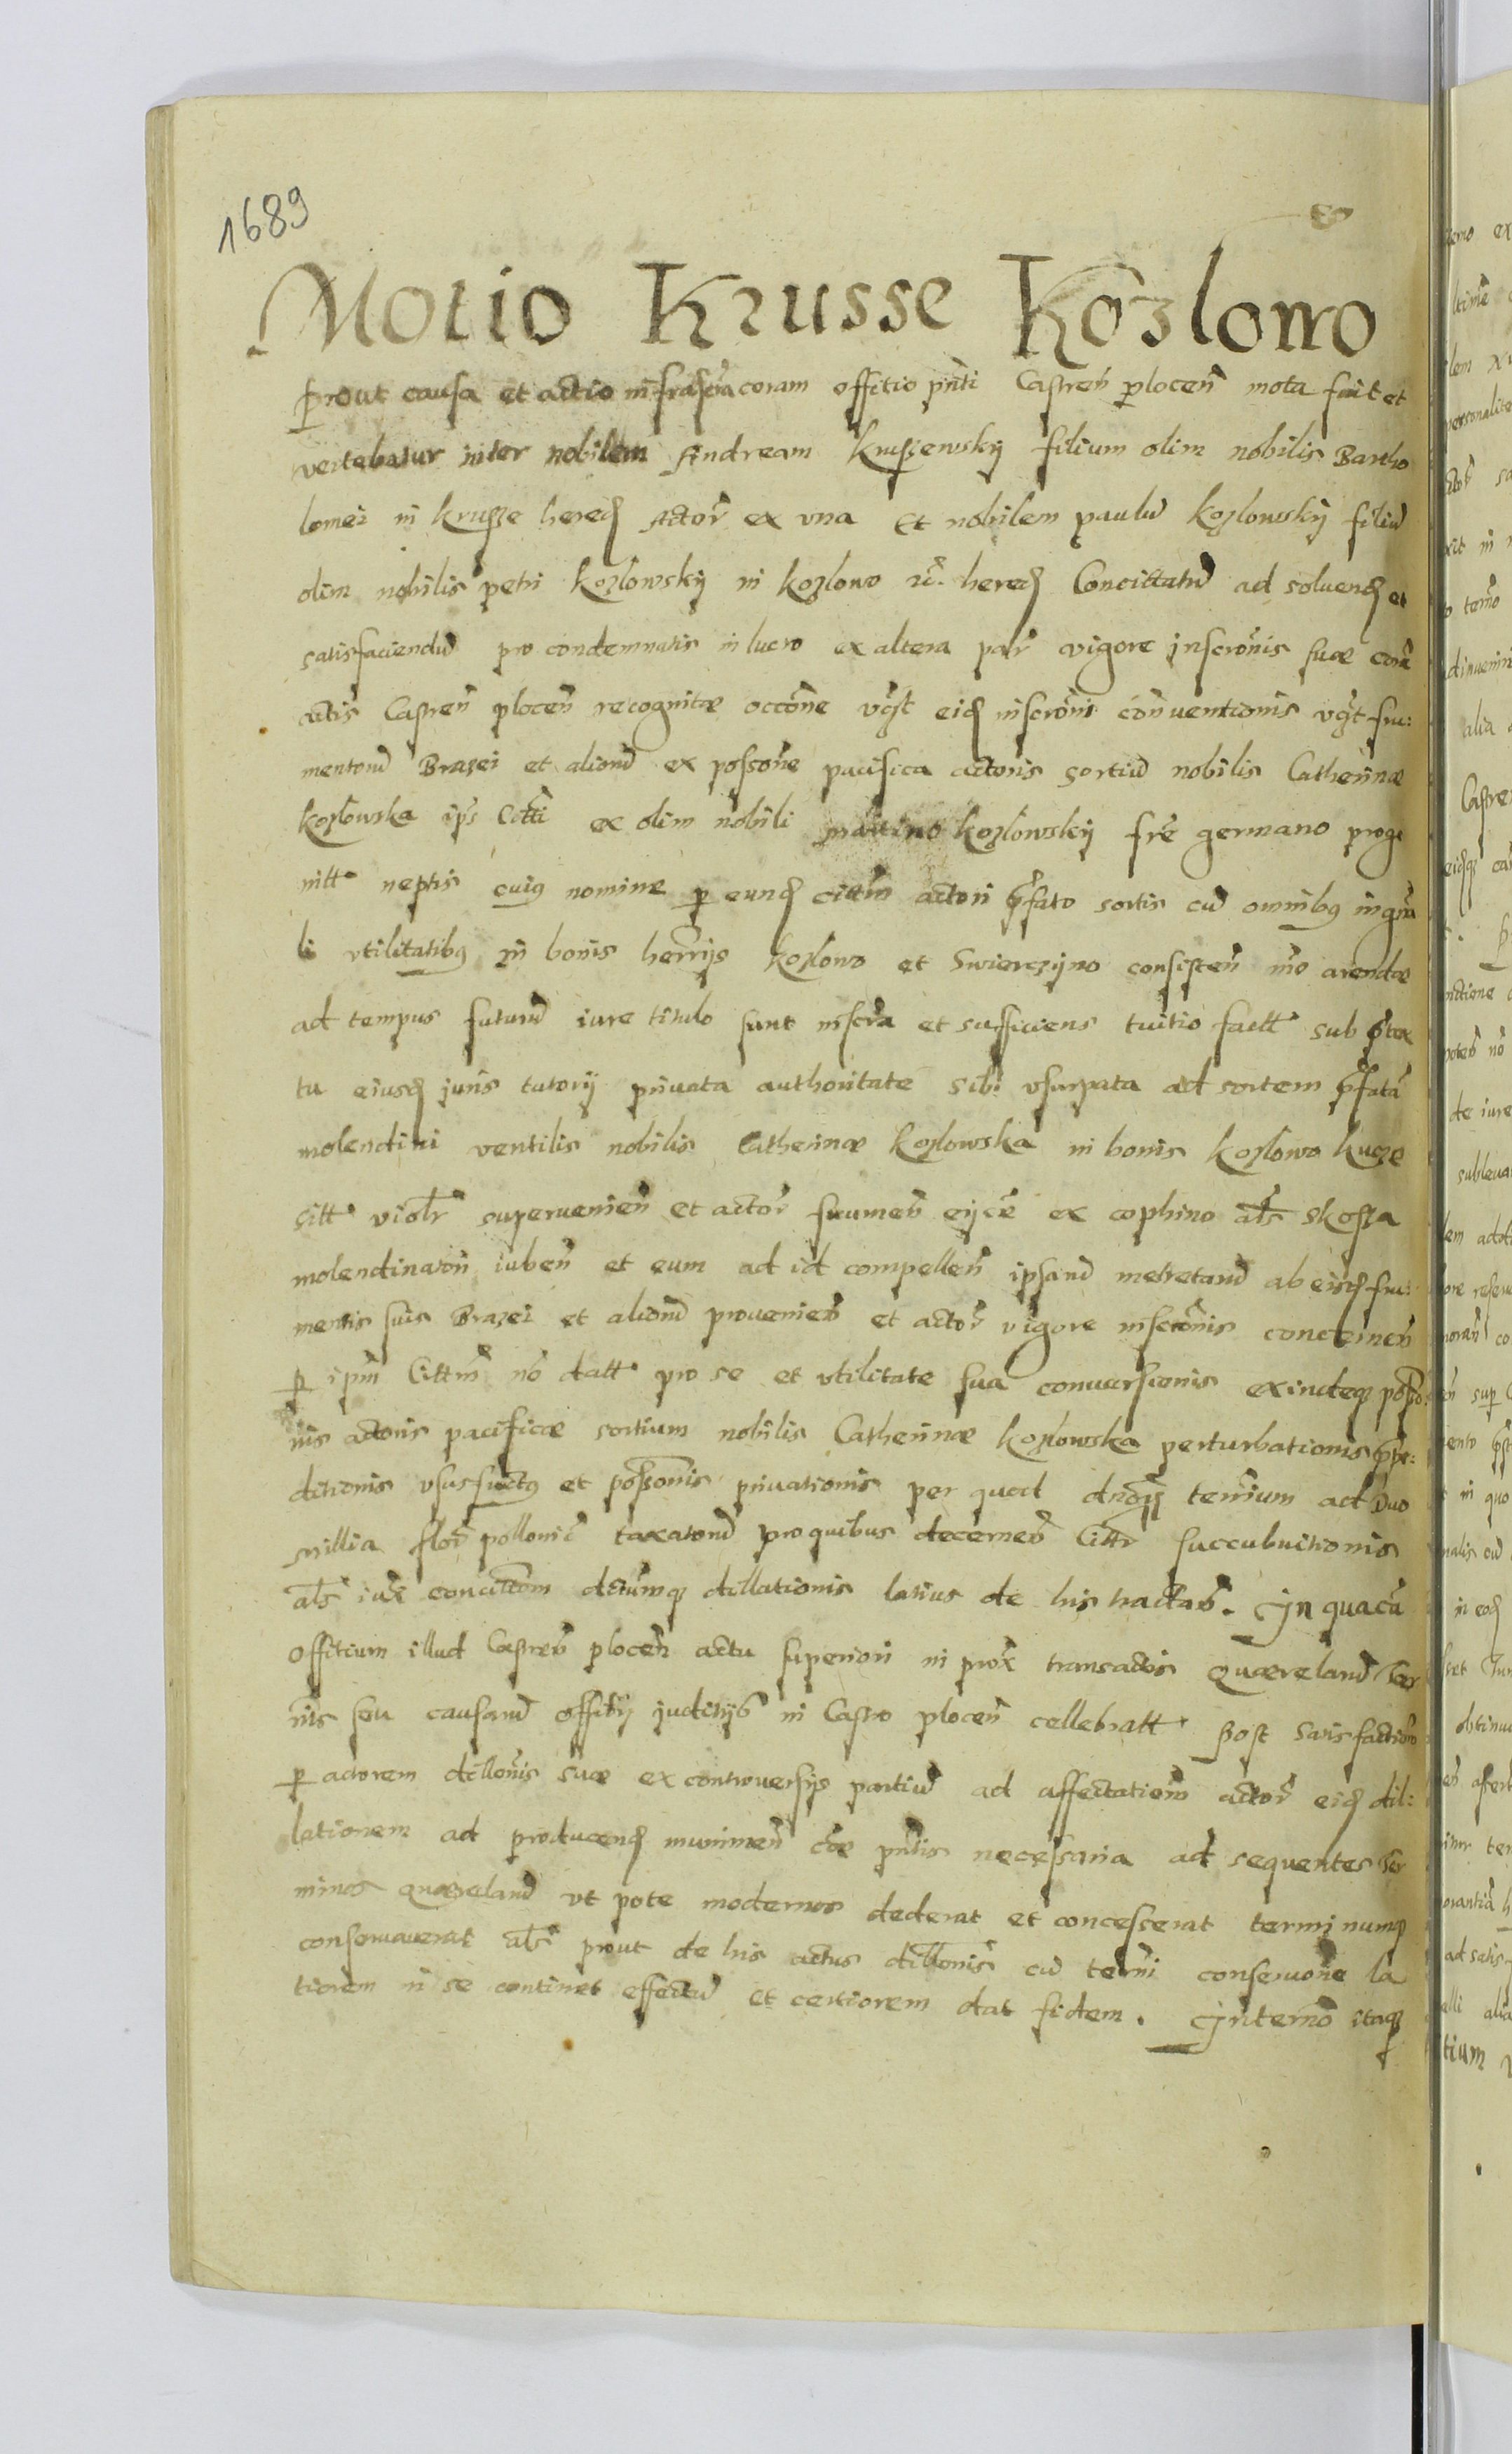 1689
Motio Krusse Kozlowo
Prout causa et actio infrascra coram offitio pnti Castren plocen mota fuit et
vertebatur inter nobilem Andream Kruszewskij filium olim nobilis Bartho
lomei in Krusze hered Actor ex una Et nobilem paulu Kozlowskij filiu
olim nobilis petri Kozlowskij in Kozlowo hered Concittatu ad soluend et
satisfaciendu pro condemnatis in lucro ex altera par vigore inscronis suæ cora
actis Castren plocen recognitæ occone vgst eid inscroni conventionis vgst fru:
mentoru Brazei et alioru ex possone pacifica actoris sortiu nobilis Catherinæ
Kozlowska ips Citti ex olim nobili martino Kozlowskij fre germano proge
nitt neptis cuius nomine p eund cittm actori pfato sortis cu omnibus in gnra
li vtilitatibus in bonis herrijs Kozlowo et Swierczijno consisten mo arendæ
ad tempus futuru iure titulo sunt inscra et sufficiens tuitio fact sub prtex
tu eiusd juris tutorij privata authoritate sibi vsurpata ad sortem pfata
molendini ventilis nobilis Catherinæ Kozlowska in bonis Kozlowo
sitt violr supervenien et actor frumen eijce ex cophino als Skosza
molendinatori iuben et eum ad id compellen ipsaru metretaru ab eisd fru:
mentis suis Brazei et alioru provenien et actor vigore inscronis concernen
p ipm Cittm no datt pro se et vtilitate sua conversionis exindeq posso:
nis actoris pacificæ sortium nobilis Catherinæ Kozlowska perturbationis pe:
ditionis vsusfructus et possonis privationis per quod ad Duo
millia flor pollonic taxatoru pro quibus decernen Cittr succubuitionis
als iux concittom dictumq dillationis latius de his tractan. In qua ca
Offitium illud Castren plocen actu superiori in prox transactis Quærelaru ter
nis seu causaru offitij juditijs in Castro plocen cellebratt Post satisfaction
p actorem dillonis suæ ex controversijs partiu ad affectationem actor eid dil:
lationem ad producend munimen cæ pntis necessaria ad sequentes ter
minos Quærelaru vt pote modernos dederat et concesserat terminumq
conservaverat als prout de his actus dillonis cu terni conservone la
tiorem in se continet effectu et certiorem dat fidem. In termo itaq